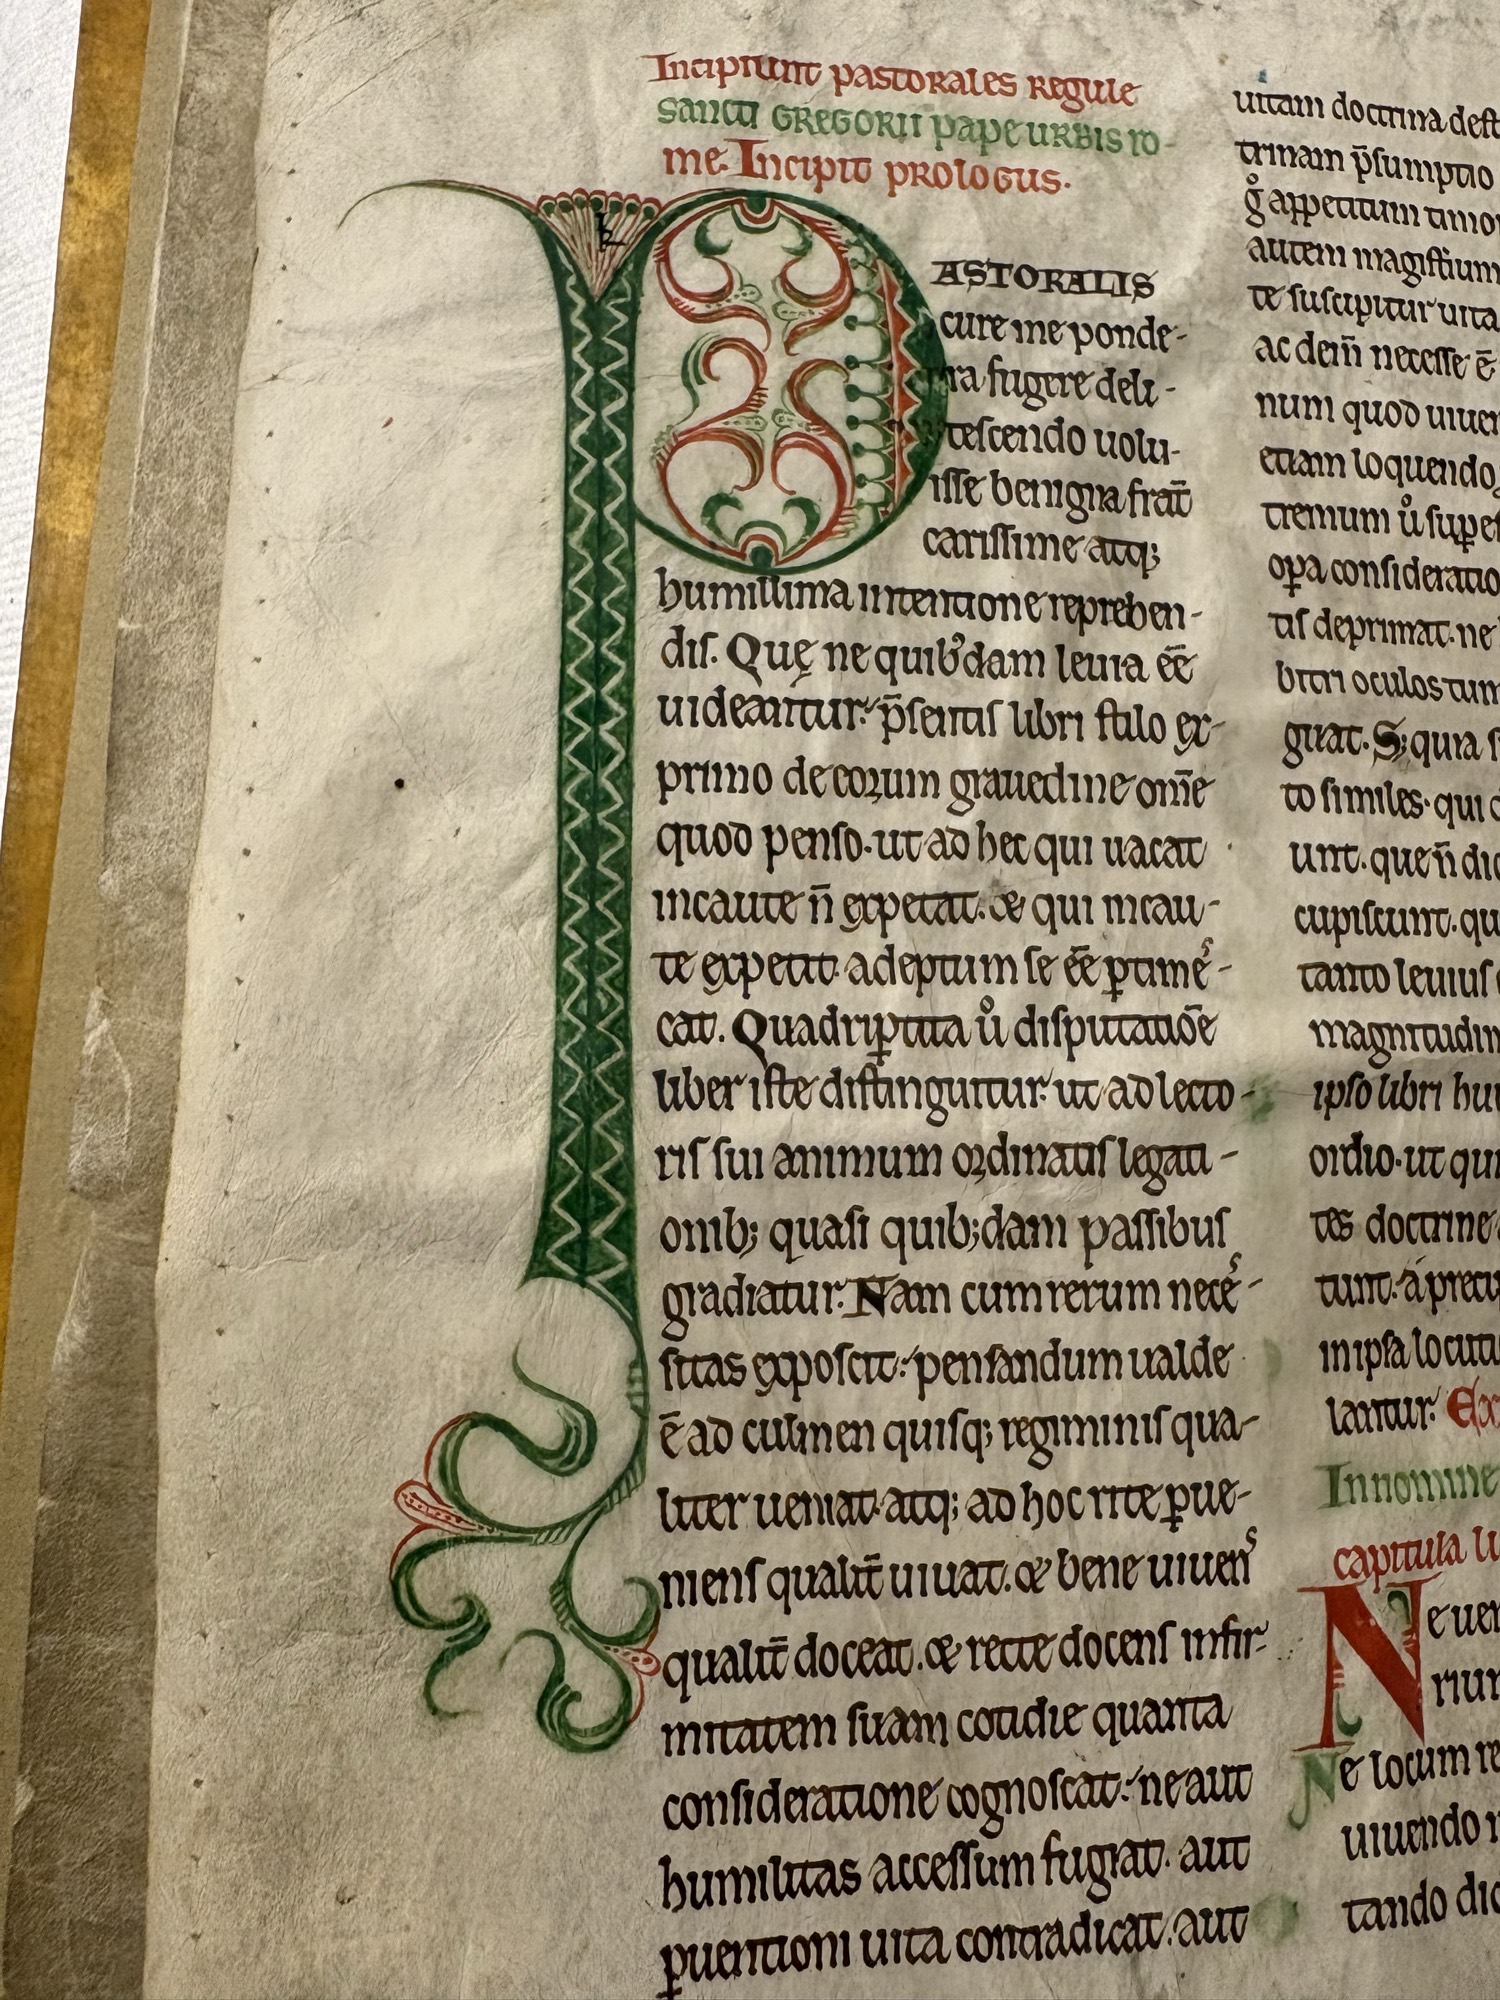 Incipiunt pastorales regule
sancti GREGORII pape URBIS ro-
me. Incipit prologus.
PASTORALIS
cure me ponde-
ra fugere deli-
tescendo uolu-
isse benigna frat̄
carissime atq;
humillima intentione reprehen-
dis. Quę ne quibꝰdam leuia ēē
uideantur. p̄sentis libri stilo ex-
primo de eorum grauedine om̄e
quod penso. ut ad hec qui uacat
incaute n̄ expetat. & qui incau-
te expetit. adeptum se ēē ꝑtime̾s-
cat. Quadriꝑtita uº disputatiōe
liber iste distinguitur. ut ad lecto-
ris sui animum ordinatis legati-
onib; quasi quib;dam passibus
gradiatur. Nam cum rerum neces-
sitas exposcit. pensandum ualde
ē ad culmen quisq; regiminis qua-
liter ueniat. atq; ad hoc rite ꝑue-
niens qualit̄ uiuat. & bene uiuens
qualit̄ doceat. & recte docens infir-
mitatem suam cotidie quanta
consideratione cognoscat. ne aut
humilitas accessum fugiat. aut
ꝑuentioni uita contradicat. aut
uitam doctrina dest
trinam p̄sumptio
gº appetitum timor
autem magistrium
te suscipitur uita
ac dein̄ necesse ē
num quod uiuen
etiam loquendo
tremum uº supes
oꝑa consideratio
tis deprimat. ne
bitri oculos tum
guat. S; quia s
to similes. qui d
unt. que n̄ dic
cupiscunt. qu
tanto leuius
magnitudin
ipso libri hui
ordio. ut qui
tes doctrine
tunt. a precu
in ipsa locuti
lantur. Ex
In nomine
capitula li
Ne uen
rium
Ne locum re
uiuendo n
tando dic